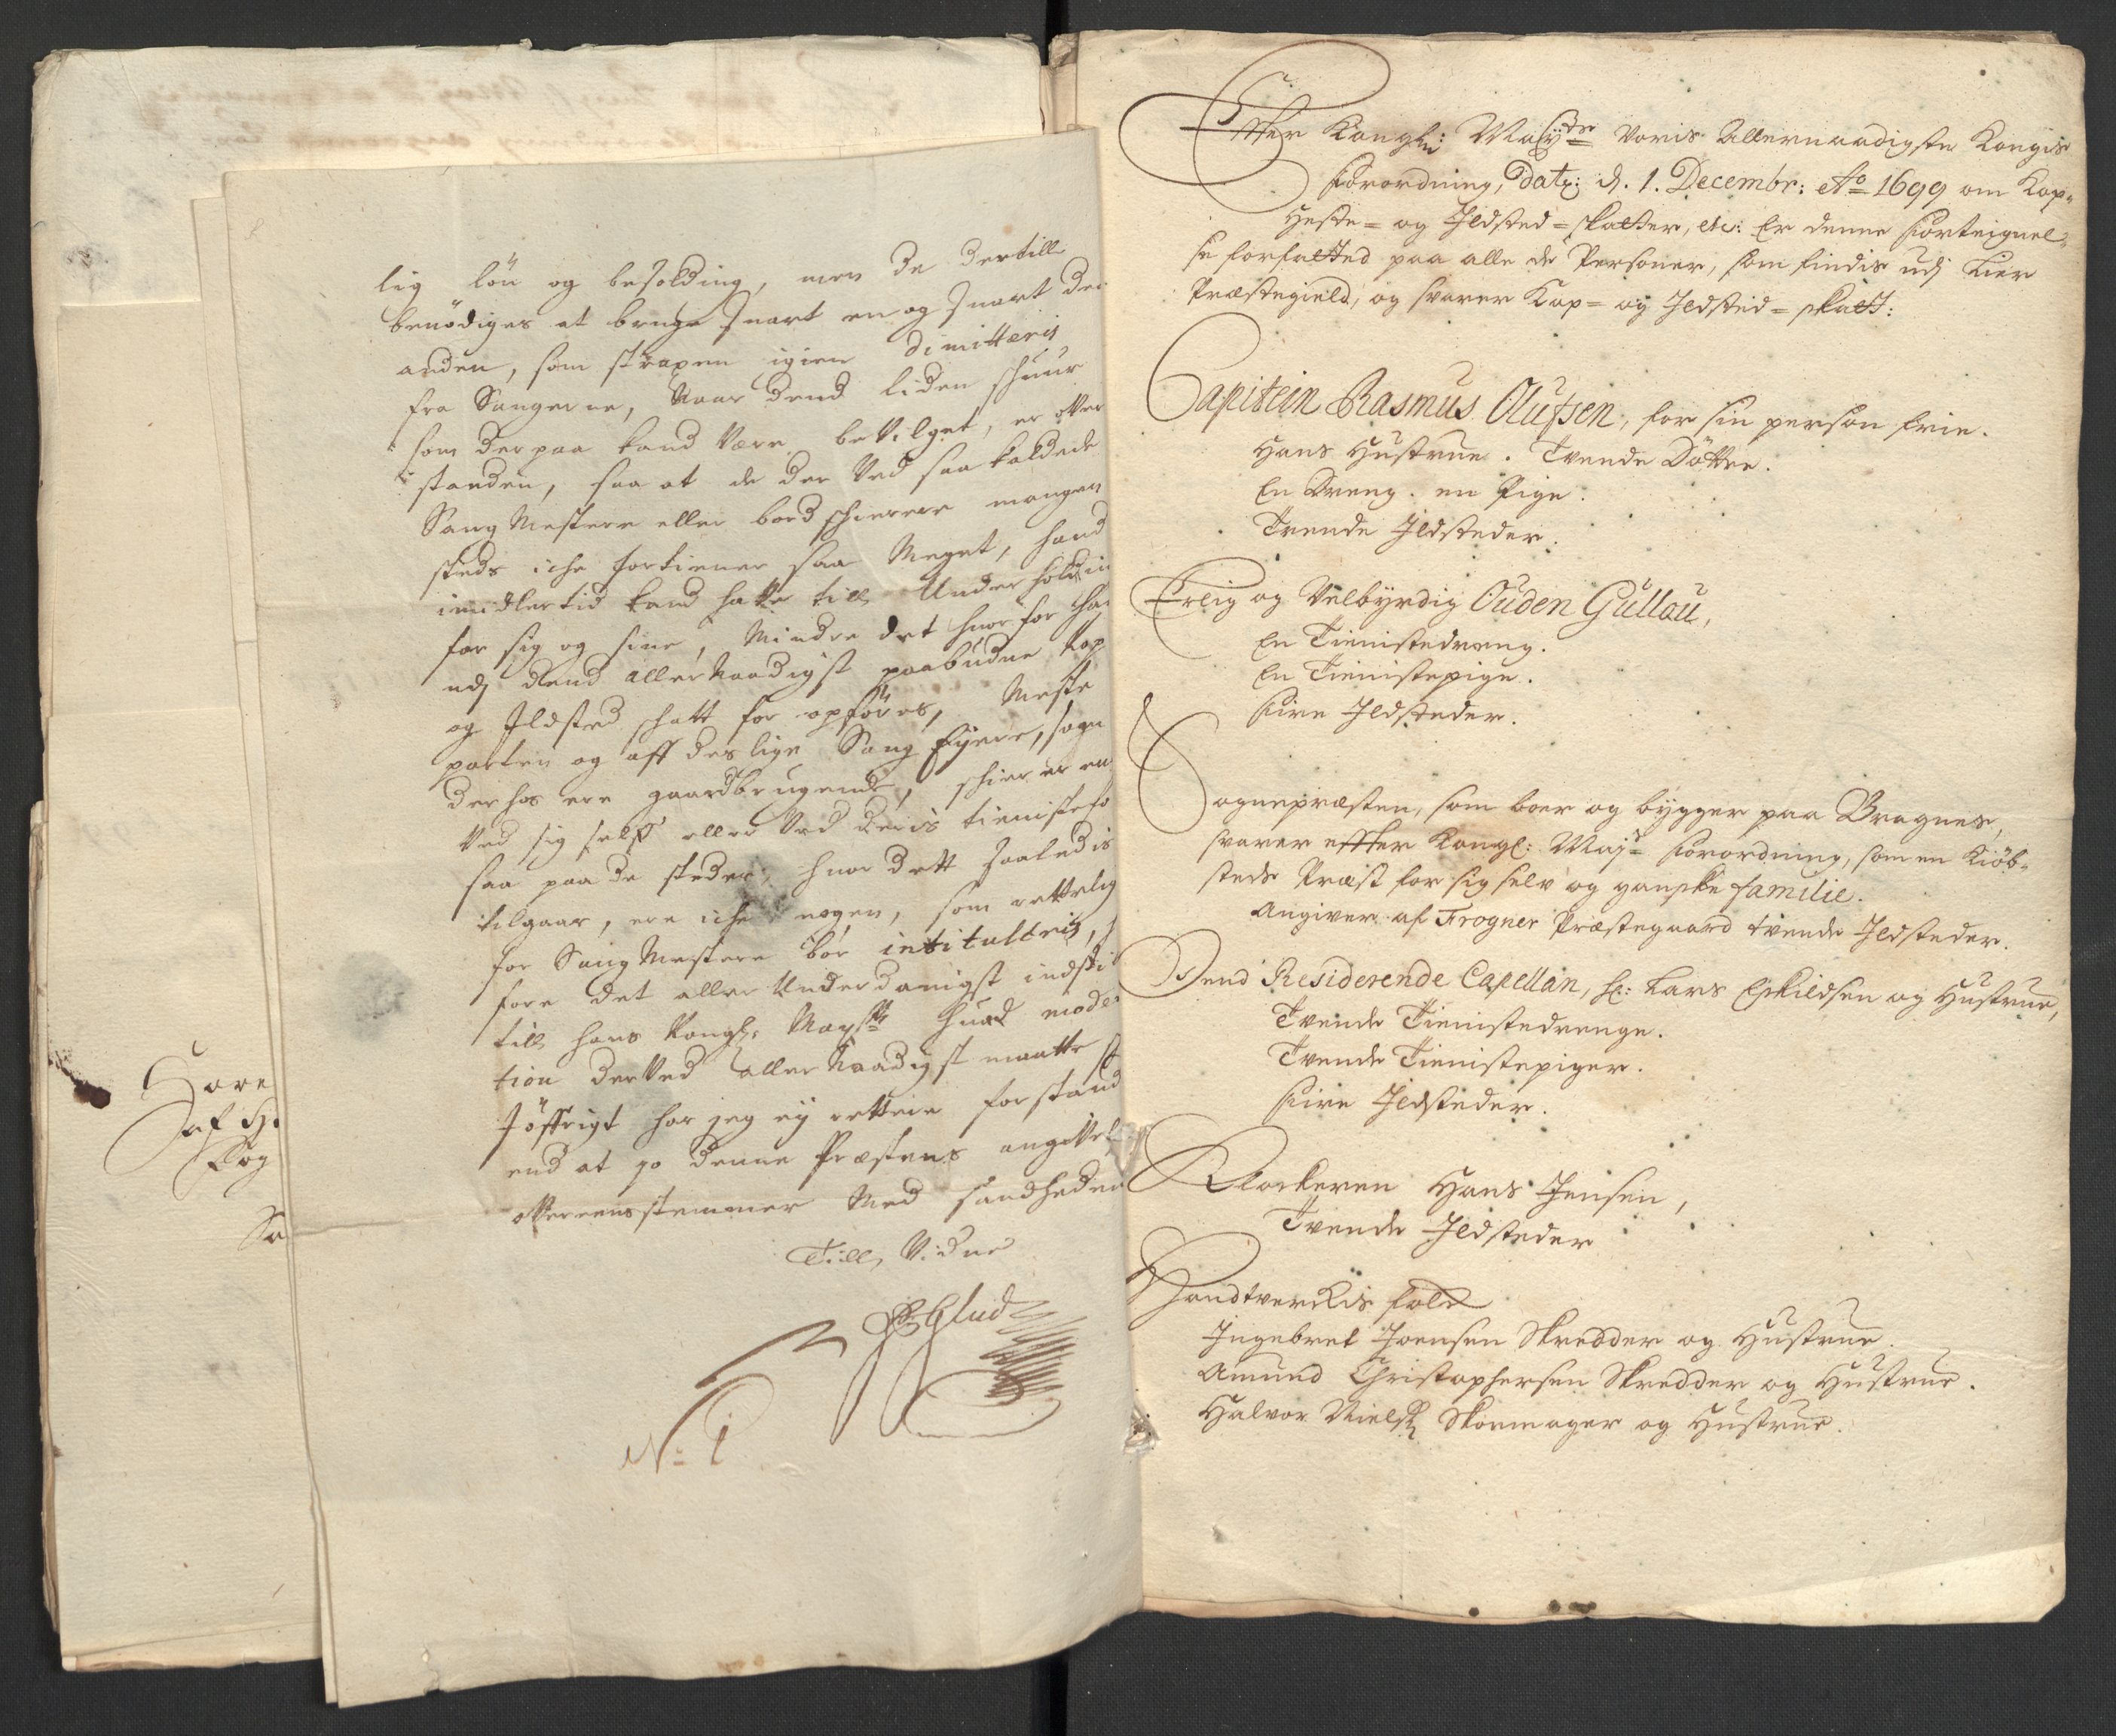 Hore
af H.
Fog
Sa
lig lön og besolding, men de dertill
benödiges at bruge snart en og snart den
anden, som straxen igien dimitteris
fra Saugerne, Naar dend liden schuur
som der paa kand være bevilget, er over
standen, saa at de der ved saa kaldede
Saug Mestere eller bord schierere mangen
steds iche fortiener saa meget, hand
imidlertid kand hafve till Underholdnin
for sig og sine, Mindre det huor for ha
udj dend allernaadigst paabudne Kop
og Ildsted schatt for opföres, Meste
parten og aff deslige Saug Eyere, som
der hos ere gaardbrugende, schierer en
ved sig self eller ved deris tienistefo
saa paa de steder, huor dett saaledis
tilgaar, ere iche nogen, som rettelig
for Saug Mestere bör intituleris,
fore det aller Underdanigst indstil
till hans Kongl: Mayst huad mode
tion derved aller Naadigst maatte s
Jöffrigt har jeg ey rettere forstand
end at jo denne Præstens angivel
offvereensstemmer med sandheden
Till Vidne
Glud
No 1
Efter Kongl: Mayts Voris Allernaadigste Kongis
Forordning, Dat: d. 1. Decembr: Ao 1699 om Kop-
Heste- og Ildsted-skatter, etc: Er denne Forteignel-
se forfatted paa alle de Personer, som findis udj Lier
Præstegield, og svarer Kop- og Ildsted-skatt:
Capitein Rasmus Olufsen, for sin person frie.
Hans Hustrue. Tvende Döttre.
En Dreng. en Pige.
Trende Ildsteder.
Erlig og Velbyrdig Ouden Gullou,
En Tienistedreng.
En Tienistepige.
Fire Ildsteder.
Sognepræsten, som boer og bygger paa Bragnes,
svarer effter Kongl: Majts Forordning, som en Kiöb-
steds Præst for sig selv og ganske familie.
Angiver af Frogner Præstegaard tvende Ildsteder.
Dend Residerende Capellan, Hr: Lars Eskildsen og Hustrue,
Tvende Tienistedrenge.
Tvende Tienistepiger.
Fire Ildsteder.
Klockeren Hans Jensen,
Tvende Ildsteder
Handtverckis folk
Ingebret Joensen Skredder og Hustrue.
Amund Christophersen Skredder og Hustrue.
Halvor Nielss. Skoemager og Hustrue.